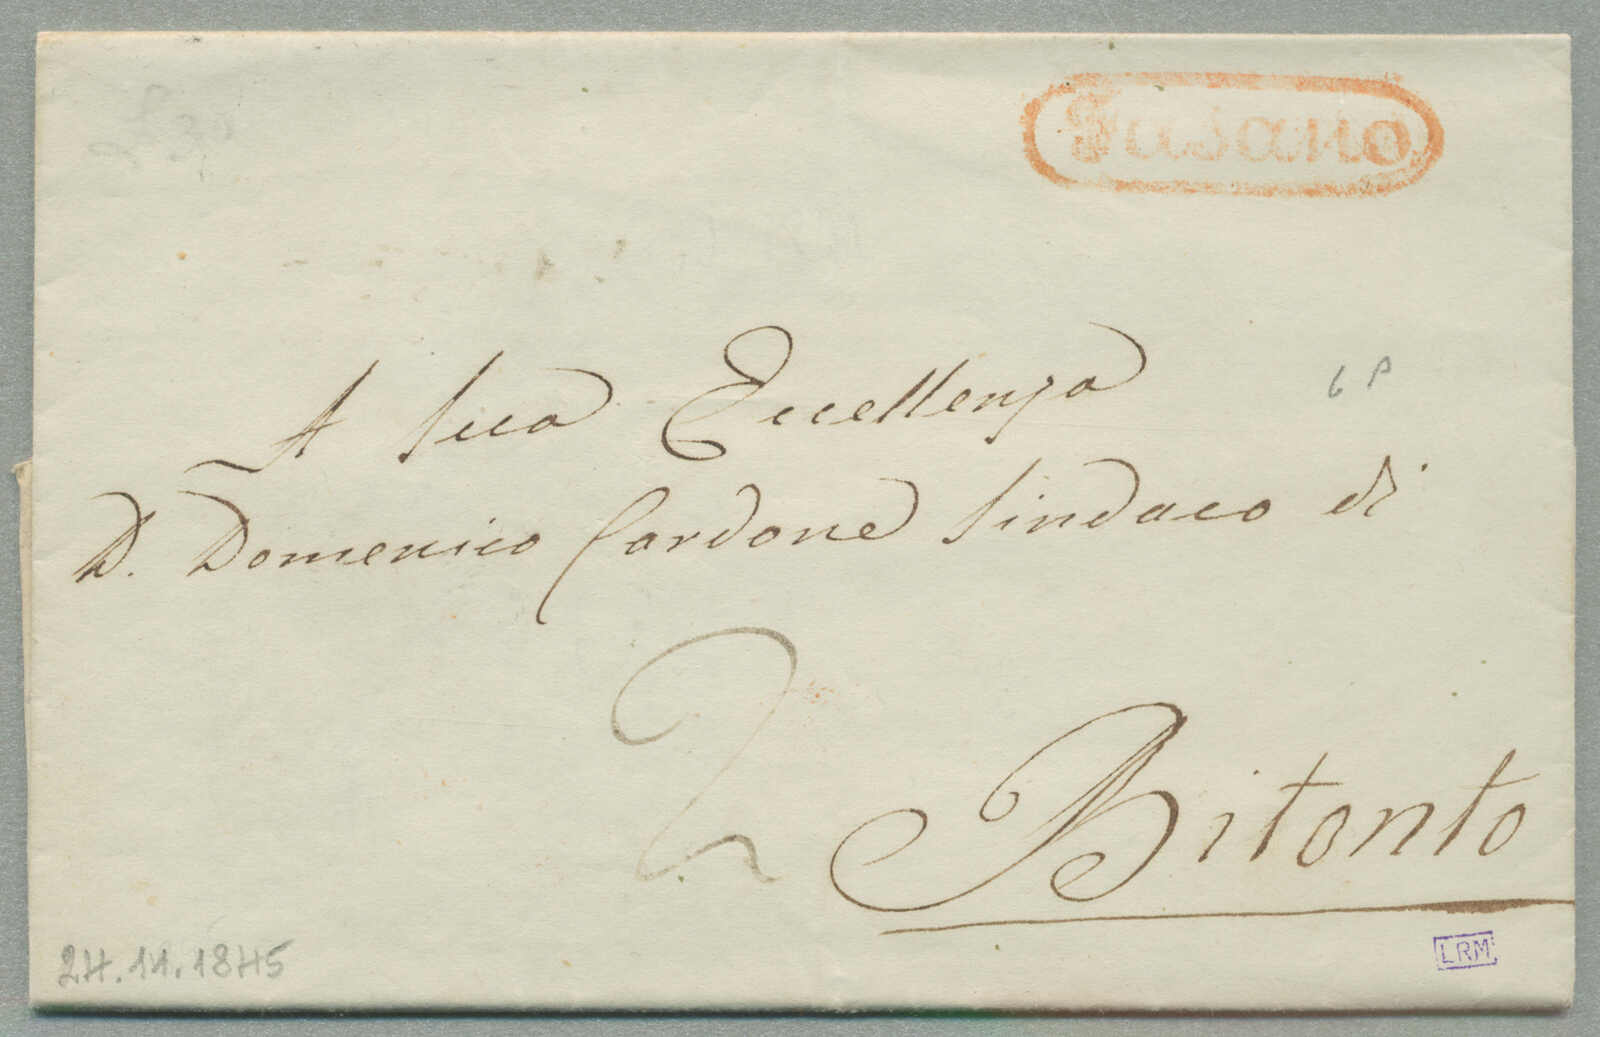 Fasano
A Sua Eccellenza
6 P
D. Domenico Cardone Sindaco di
2
Bitonto
24.11.1845
LRM